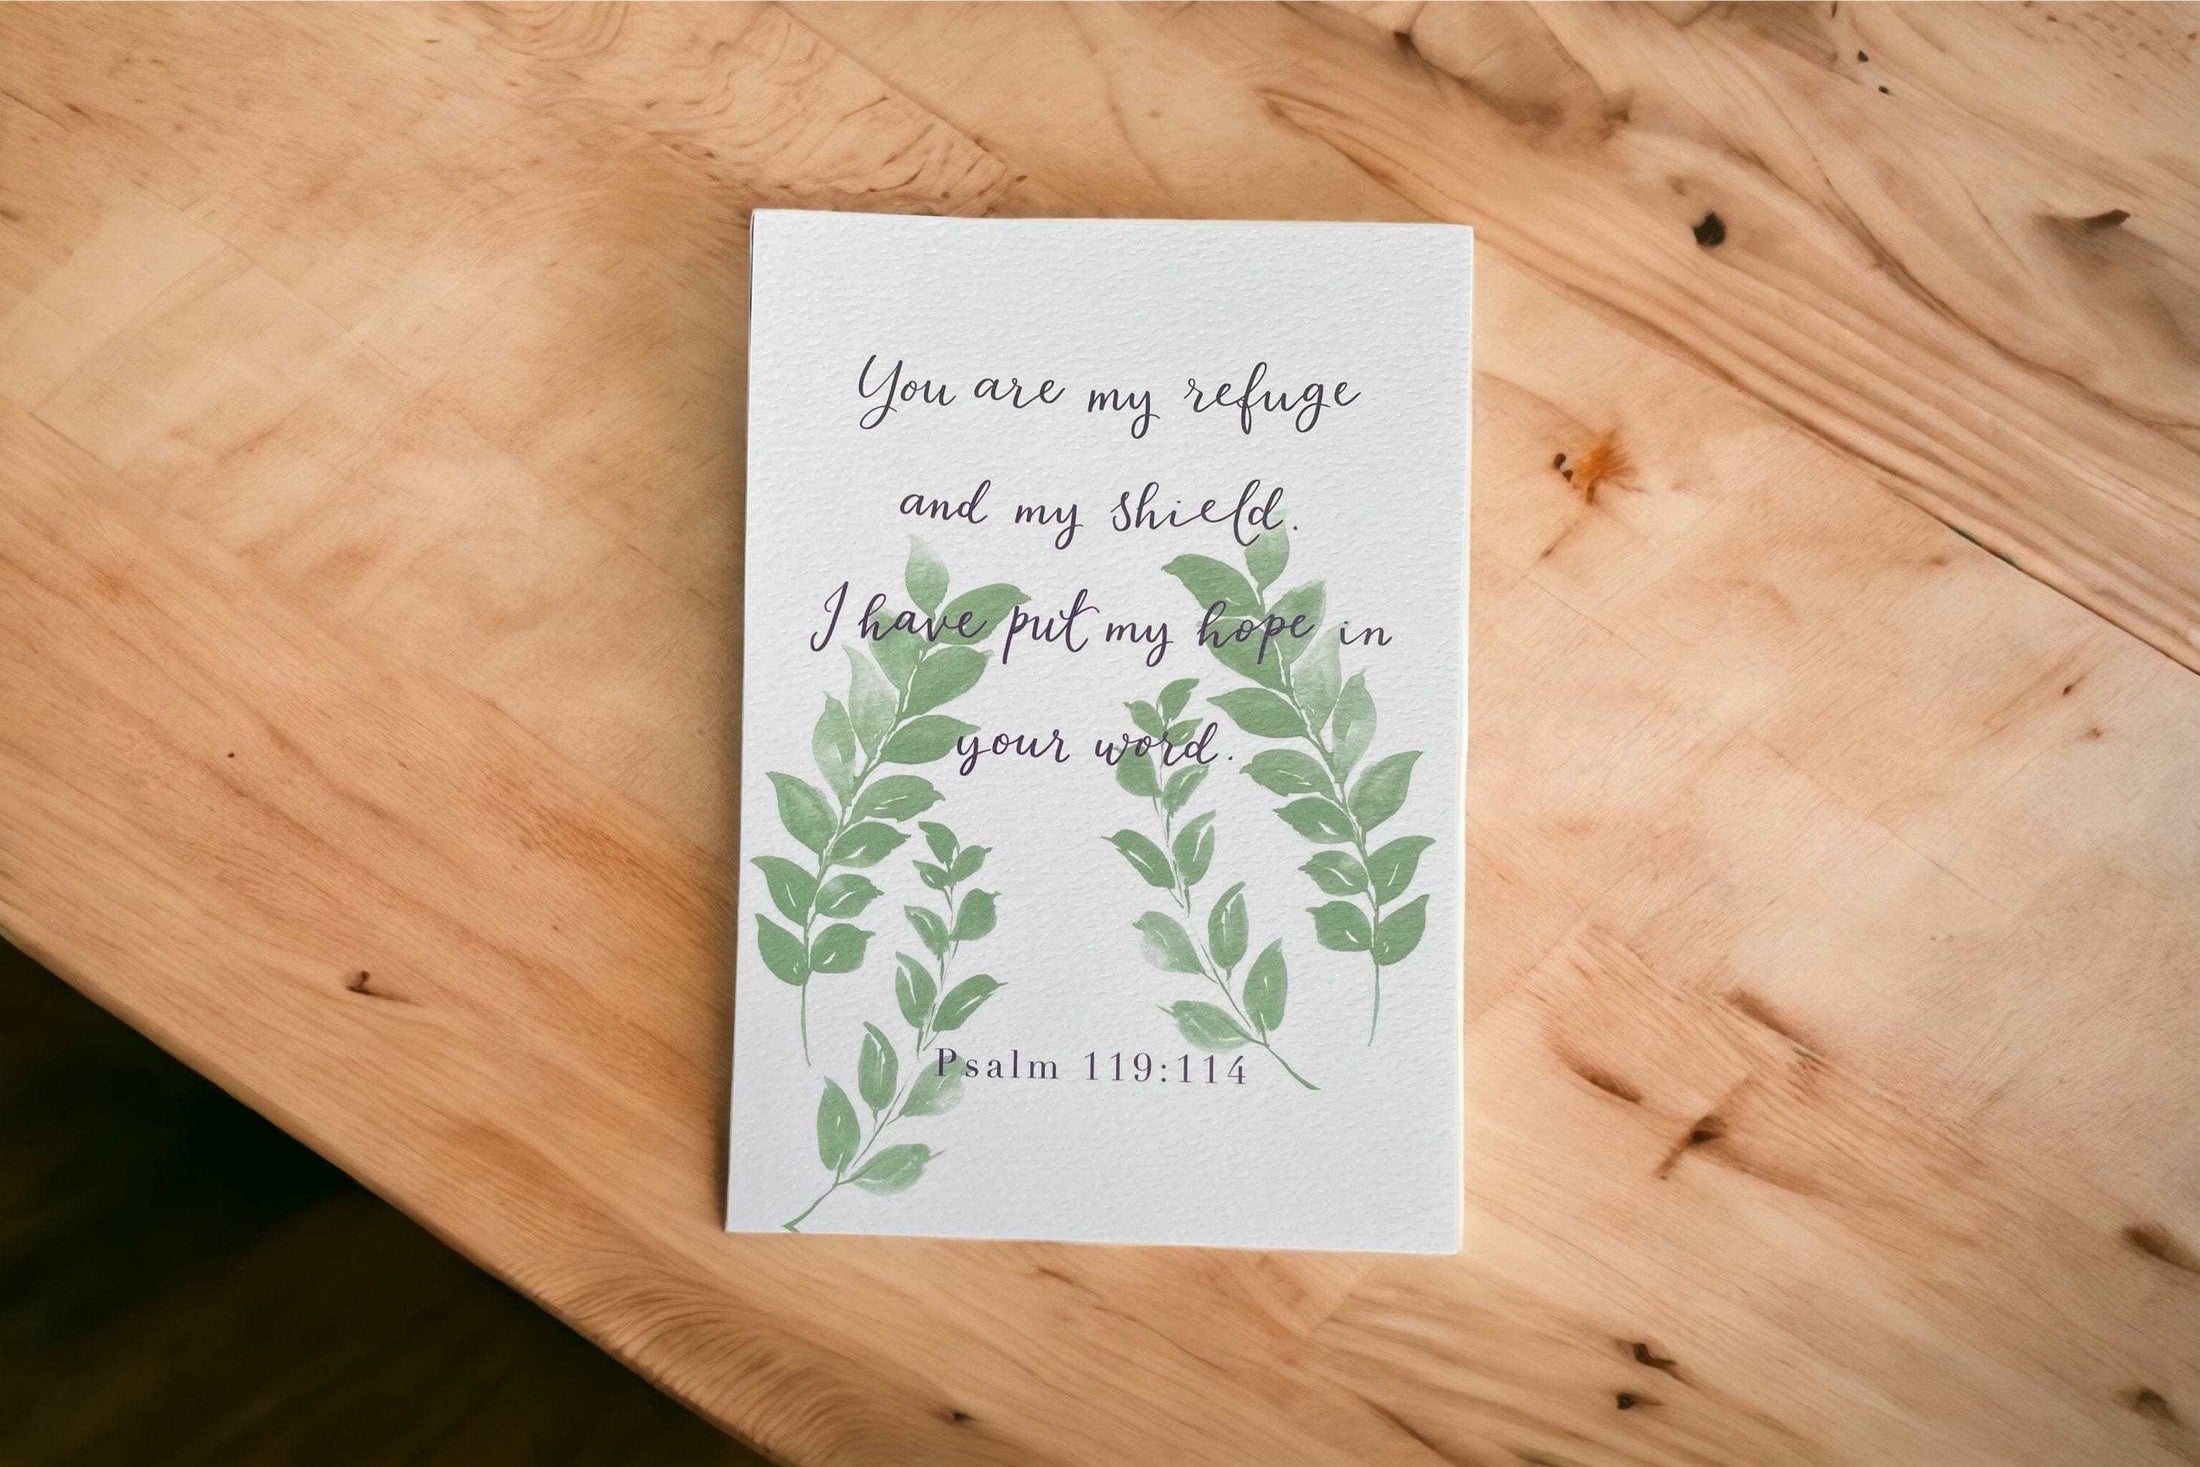 You are my refuge
and my shield.
I have put my hope in
your word.
Psalm 119:114